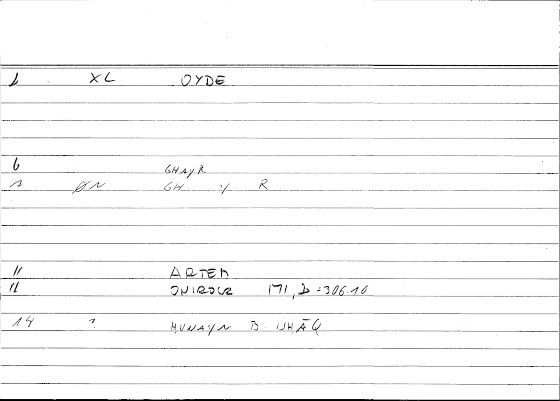 1 XL OYDE
6 GHAYR
1 ØN GH Y R
11 ARTEM
11 ONIROCR 171, D =306.10
14 ? HUNAYN B. ISHĀQ